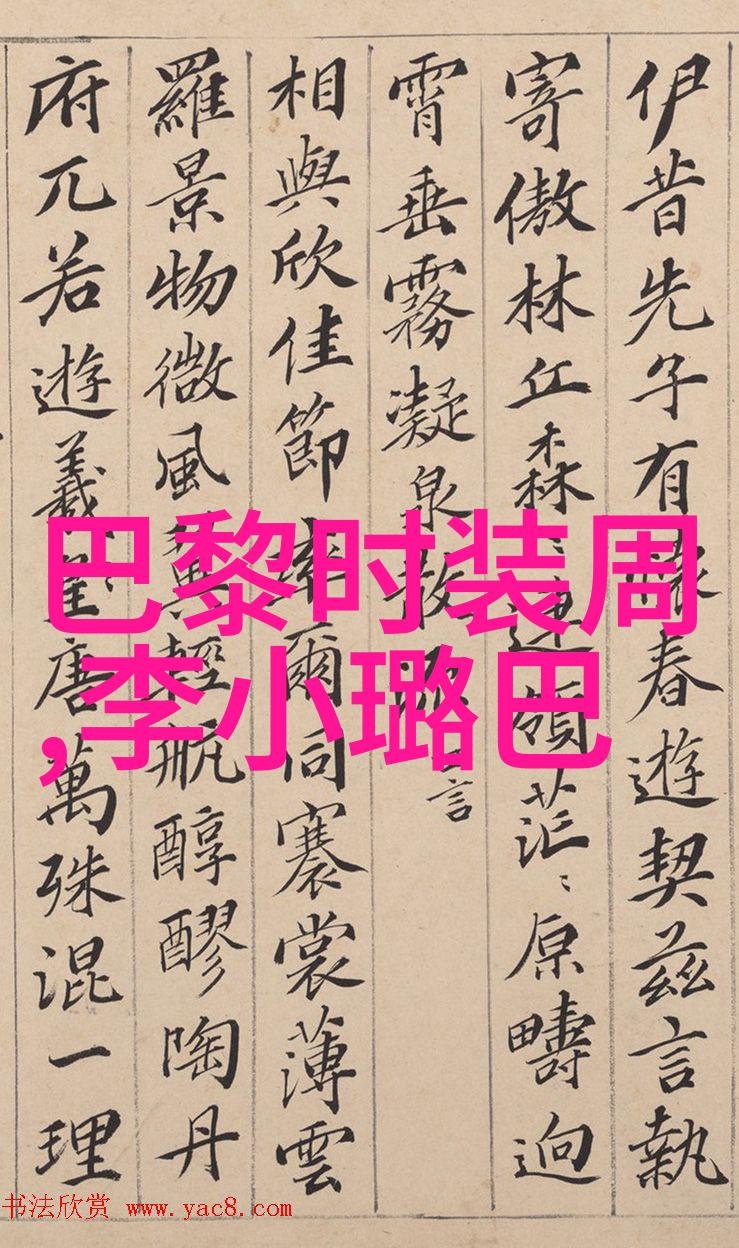 伊昔先子有懷春遊契茲言執
寄傲林丘森〻連嶺茫〻原疇迥
霄垂霧凝泉散流言
相與欣佳節率爾同褰裳薄雲
羅景物微風翼輕航醇醪陶丹
府兀若遊羲唐萬殊混一理
巴黎时装周
,李小璐巴
书法欣赏 www.yac8.com